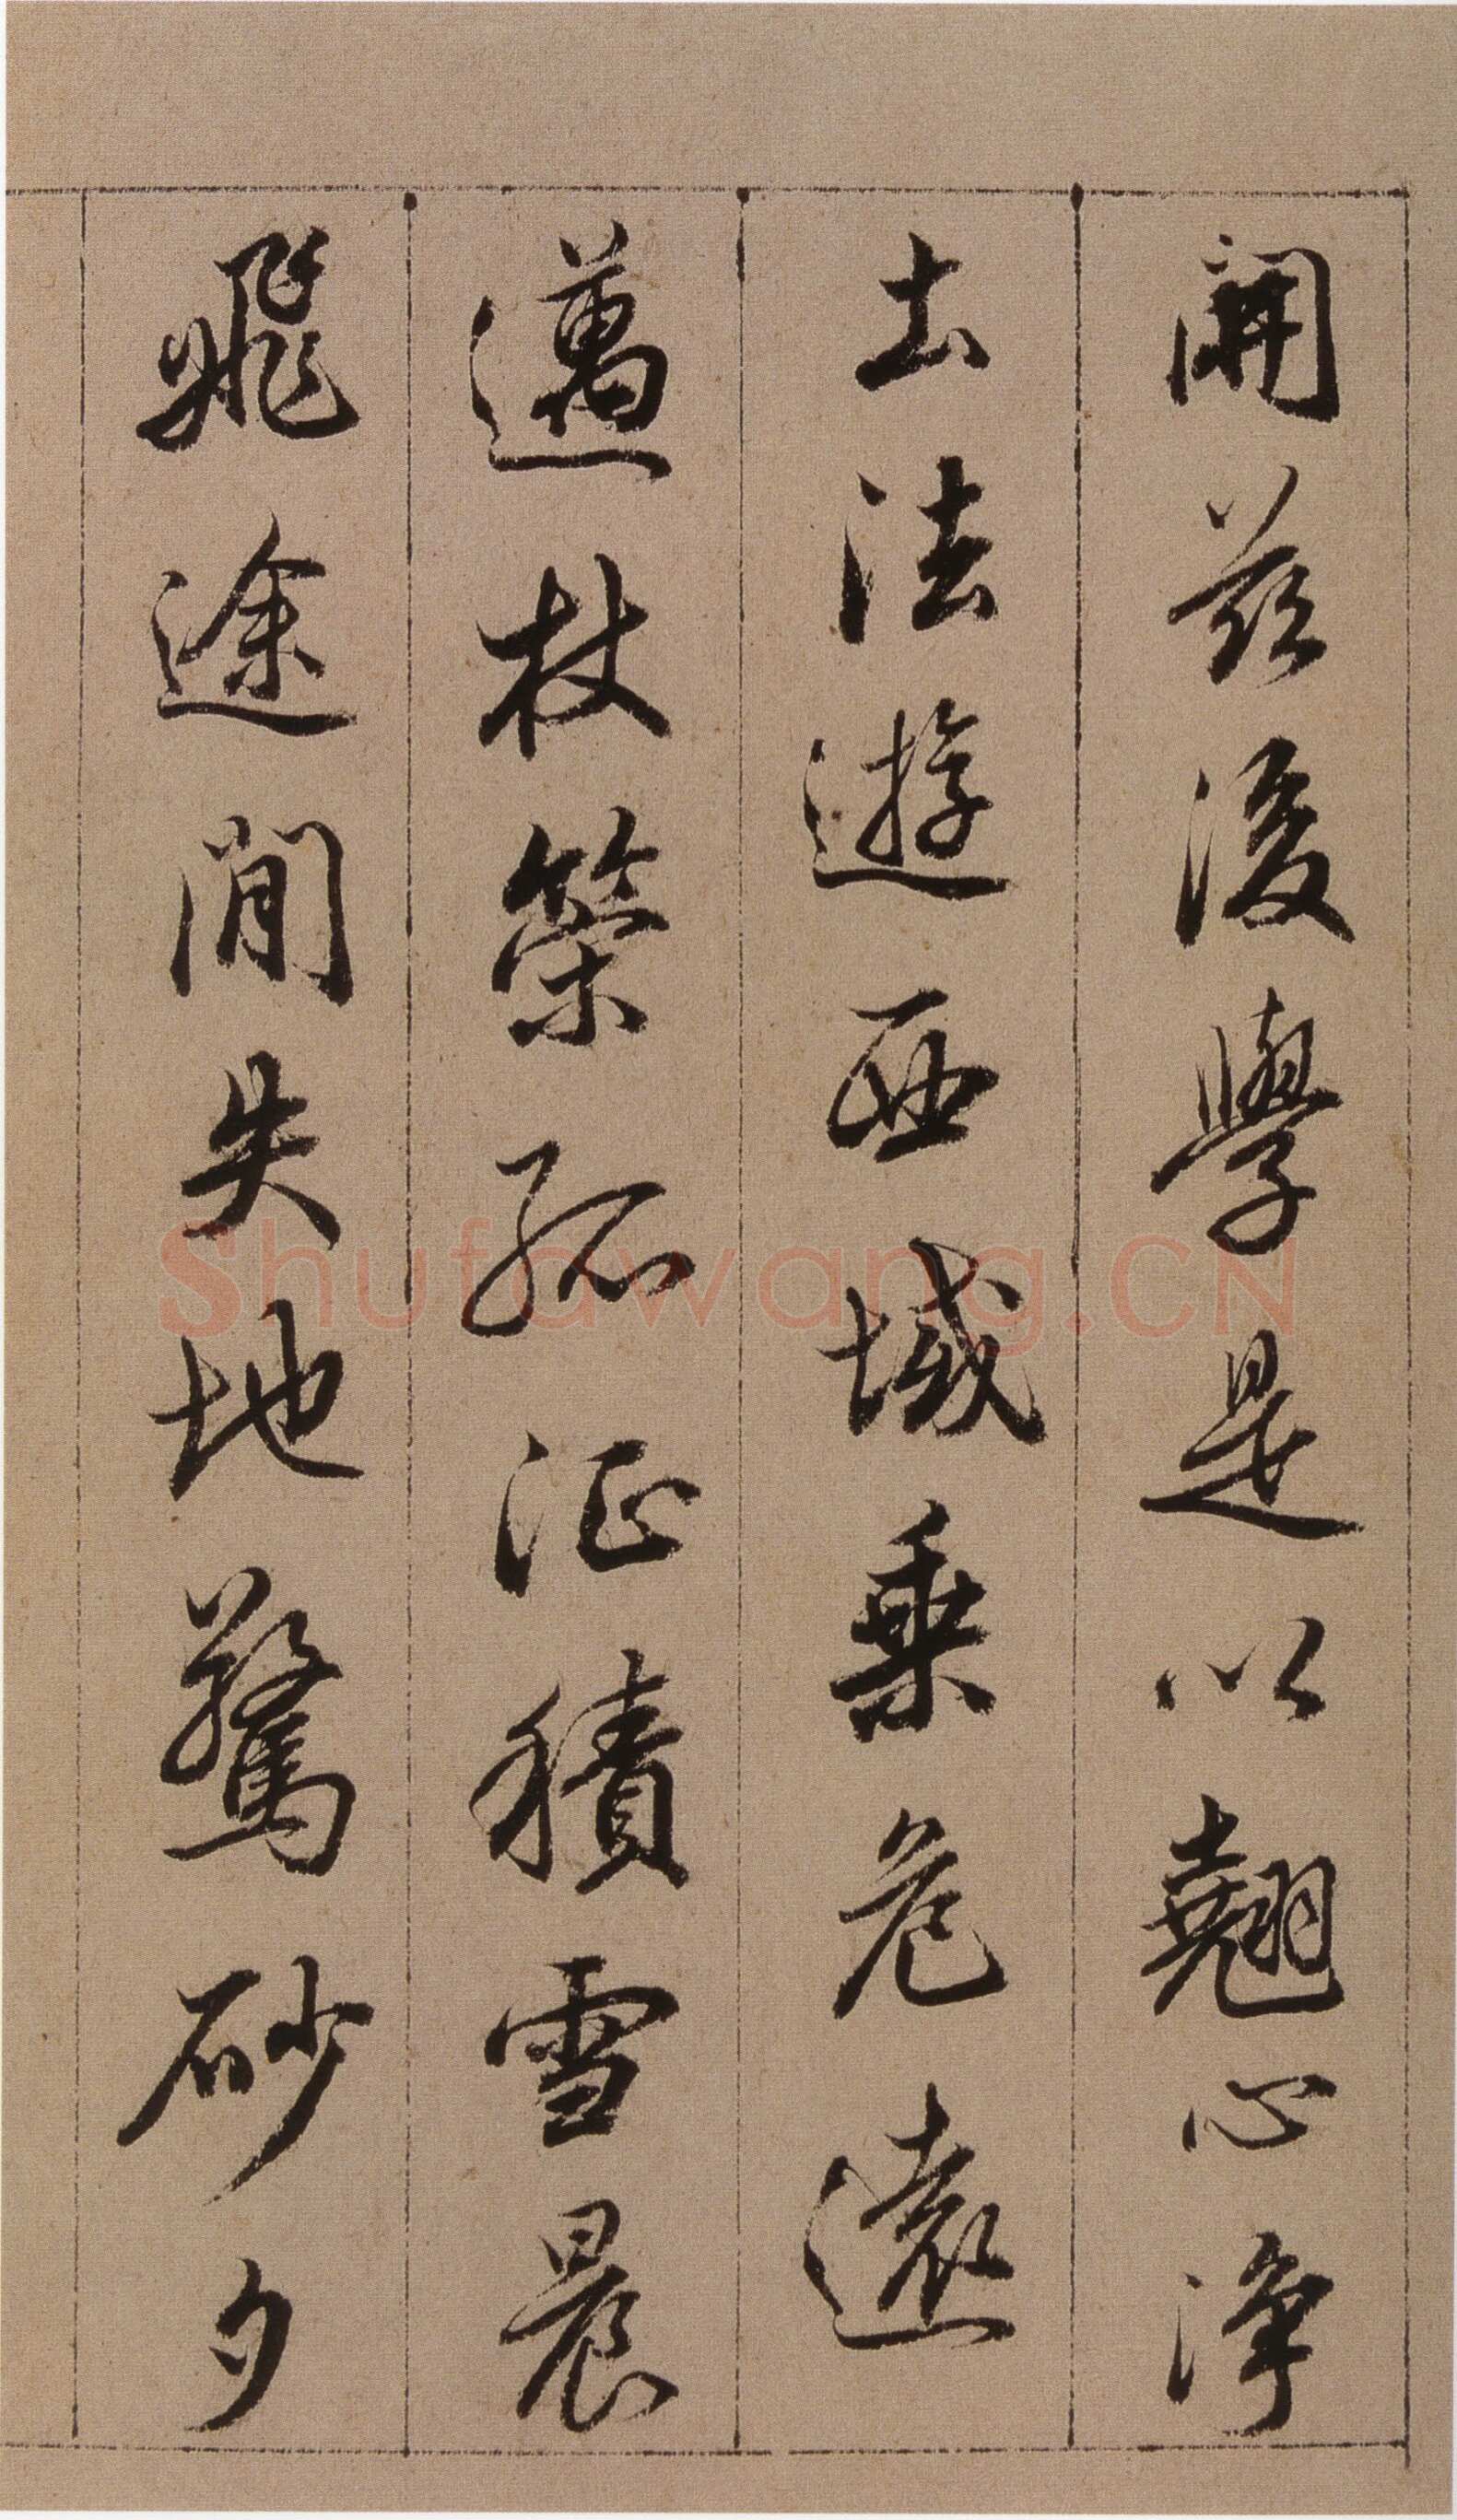 開茲後學是以翹心淨
土法遊西域乗危遠
邁杖策孤征積雪晨
飛途間失地驚砂夕
Shufawang.CN